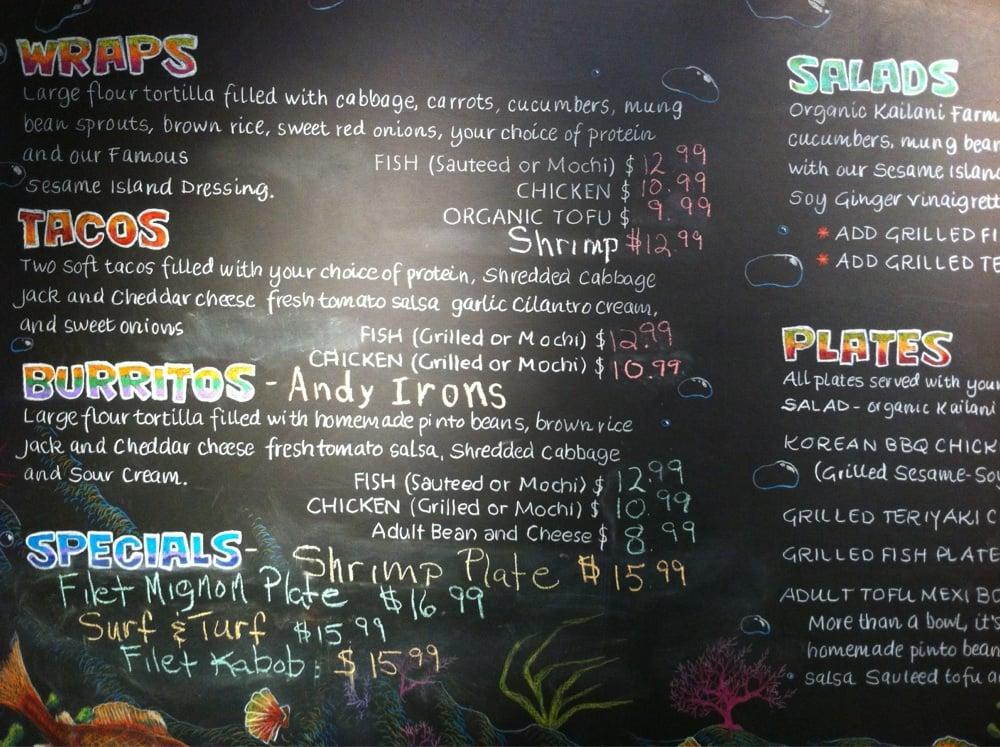 WRAPS
Large flour tortilla filled with cabbage, carrots, cucumbers, mung
bean sprouts, brown rice, sweet red onions, your choice of protein
and our Famous
Sesame Island Dressing.
FISH (Sauteed or Mochi) $12.99
CHICKEN $10.99
ORGANIC TOFU $9.99
Shrimp $12.99
TACOS
Two soft tacos filled with your choice of protein, Shredded Cabbage
Jack and Cheddar cheese fresh tomato salsa garlic Cilantro cream,
and sweet onions
FISH (Grilled or Mochi) $12.99
CHICKEN (Grilled or Mochi) $10.99
BURRITOS - Andy Irons
Large flour tortilla filled with homemade pinto beans, brown rice
Jack and Cheddar cheese fresh tomato salsa, Shredded Cabbage
and Sour Cream.
FISH (Sauteed or Mochi) $12.99
CHICKEN (Grilled or Mochi) $10.99
Adult Bean and Cheese $8.99
SPECIALS - Shrimp Plate $15.99
Filet Mignon Plate $16.99
Surf & Turf $15.99
Filet Kabob: $15.99
SALADS
Organic Kailani Farm
cucumbers, mung bean
with our Sesame Island
Soy Ginger vinaigrett
* ADD GRILLED FI
* ADD GRILLED TE
PLATES
All plates served with your
SALAD - organic Kailani
KOREAN BBQ CHICK
(Grilled Sesame-Soy
GRILLED TERIYAKI C
GRILLED FISH PLATE
ADULT TOFU MEXI BO
More than a bowl, it's
homemade pinto bean
salsa Sauteed tofu a